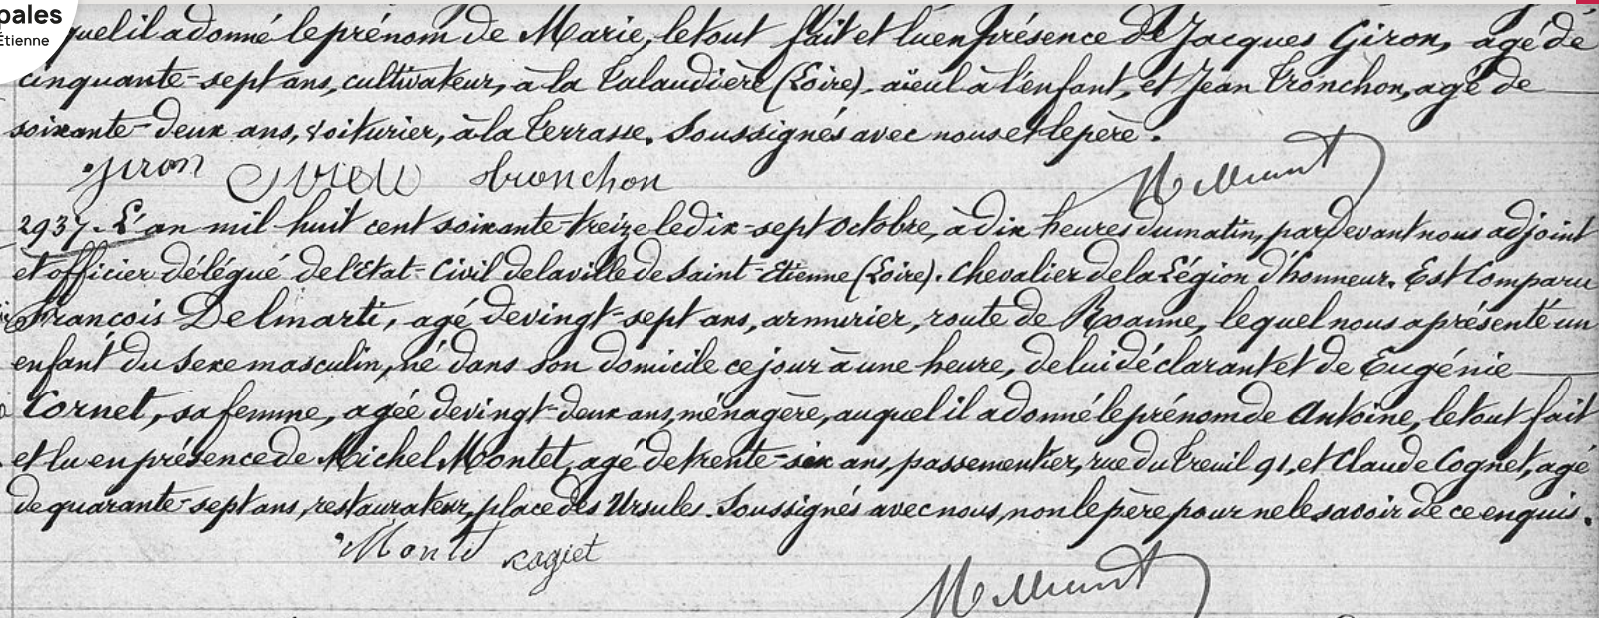 pales
Étienne
quel il a donné le prénom de Marie, le tout fait et lu en présence de Jacques Giron, agé de
cinquante-sept ans, cultivateur, à la Talaudière (Loire), aïeul à l'enfant, et Jean Tronchon, agé de
soixante-deux ans, voiturier, à la Terrasse. Soussignés avec nous et le père.
giron tronchon
2937. L'an mil huit cent soixante-treize le dix-sept octobre, à dix heures du matin, pardevant nous adjoint
et officier délégué de l'Etat-Civil de la ville de Saint-Etienne (Loire). Chevalier de la Légion d'honneur. Est Comparu
François Delmarti, agé de vingt-sept ans, armurier, route de Roanne, lequel nous a présenté un
enfant du sexe masculin, né dans son domicile ce jour à une heure, de lui déclarant et de Eugénie
Cornet, sa femme, agée de vingt-deux ans, ménagère, auquel il a donné le prénom de Antoine, le tout fait
et lu en présence de Michel Montet, agé de trente-six ans, passementier, rue du Treuil 91, et Claude Cognet, agé
de quarante-sept ans, restaurateur, place des Ursules. Soussignés avec nous, non le père pour ne le savoir de ce enquis.